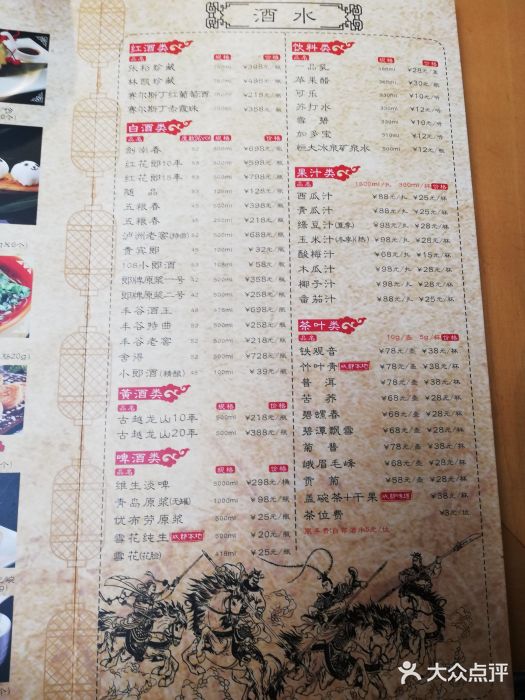 酒水
红酒类
品名 规格 价格
张裕珍藏 ¥398元/瓶
林殿珍藏 ¥498元/瓶
赛尔斯丁红葡萄酒 ¥218元/瓶
赛尔斯丁赤霞珠 ¥358元/瓶
白酒类
品名 度数(%v) 规格 价格
剑南春 52 500ml ¥698元/瓶
红花郎10年 53 500ml ¥598元/瓶
红花郎15年 53 500ml ¥798元/瓶
随品 ¥128元/瓶
五粮春 ¥398元/瓶
五粮春 ¥298元/瓶
泸州老窖(特曲) ¥388元/瓶
贵宾郎 ¥32元/瓶
108小郎酒 ¥58元/瓶
郎牌原浆一号 42 500ml ¥358元/瓶
郎牌原浆二号 42 500ml ¥258元/瓶
丰谷酒王 500ml ¥518元/瓶
丰谷特曲 52 500ml ¥258元/瓶
丰谷老窖 52 500ml ¥258元/瓶
舍得 52 500ml ¥728元/瓶
小郎酒(精酿) 45 100ml ¥39元/瓶
黄酒类
品名 规格 价格
古越龙山10年 500ml ¥218元/瓶
古越龙山20年 500ml ¥388元/瓶
啤酒类
品名 规格 价格
维生淡啤 5000ml ¥298元/桶
青岛原浆(天罐) 1000ml ¥98元/瓶
优布劳原浆 500ml ¥25元/瓶
雪花纯生 成都本地 500ml ¥20元/瓶
雪花(花脸) 418ml ¥25元/瓶
饮料类
品名 规格 价格
一品乳 ¥28元/盒
苹果醋 ¥30元/瓶
可乐 330ml ¥10元/听
苏打水 330ml ¥12元/听
雪碧 330ml ¥10元/听
加多宝 310ml ¥10元/听
恒大冰泉矿泉水 500ml ¥12元/瓶
果汁类
品名 1500ml/扎 300ml/杯 价格
西瓜汁 ¥88元/扎 ¥25元/杯
青瓜汁 ¥88元/扎 ¥25元/杯
绿豆汁(夏季) ¥98元/扎 ¥28元/杯
玉米汁(冬季)(热) ¥98元/扎 ¥28元/杯
酸梅汁 ¥68元/扎 ¥15元/杯
木瓜汁 ¥98元/扎 ¥28元/杯
椰子汁 ¥98元/扎 ¥28元/杯
番茄汁 ¥88元/扎 ¥25元/杯
茶叶类
品名 10g/壶 5g/杯 价格
铁观音 ¥78元/壶 ¥38元/杯
竹叶青 成都本地 ¥78元/壶 ¥38元/杯
普洱 ¥78元/壶 ¥38元/杯
苦荞 ¥68元/壶 ¥28元/杯
碧螺春 ¥68元/壶 ¥28元/杯
碧潭飘雪 ¥68元/壶 ¥28元/杯
菊普 ¥78元/壶 ¥38元/杯
峨眉毛峰 ¥68元/壶 ¥28元/杯
贡菊 ¥68元/壶 ¥28元/杯
盖碗茶+干果 成都味道 ¥38元/杯
茶位费 ¥3元/位
大众点评